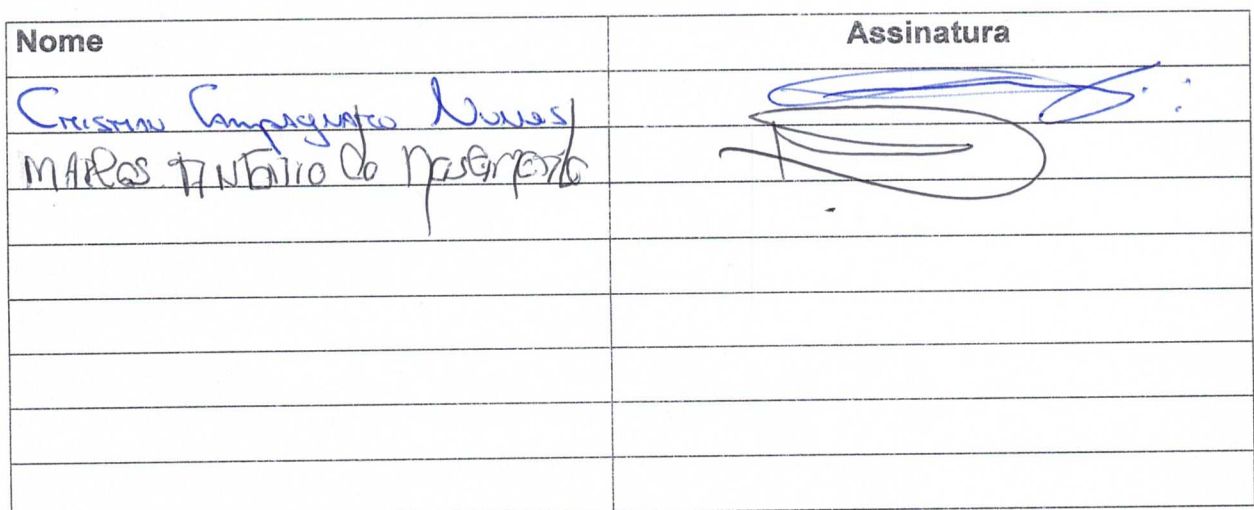 Nome Assinatura
Cristian Nunes
MARCOS ANTÔNIO do nascimento